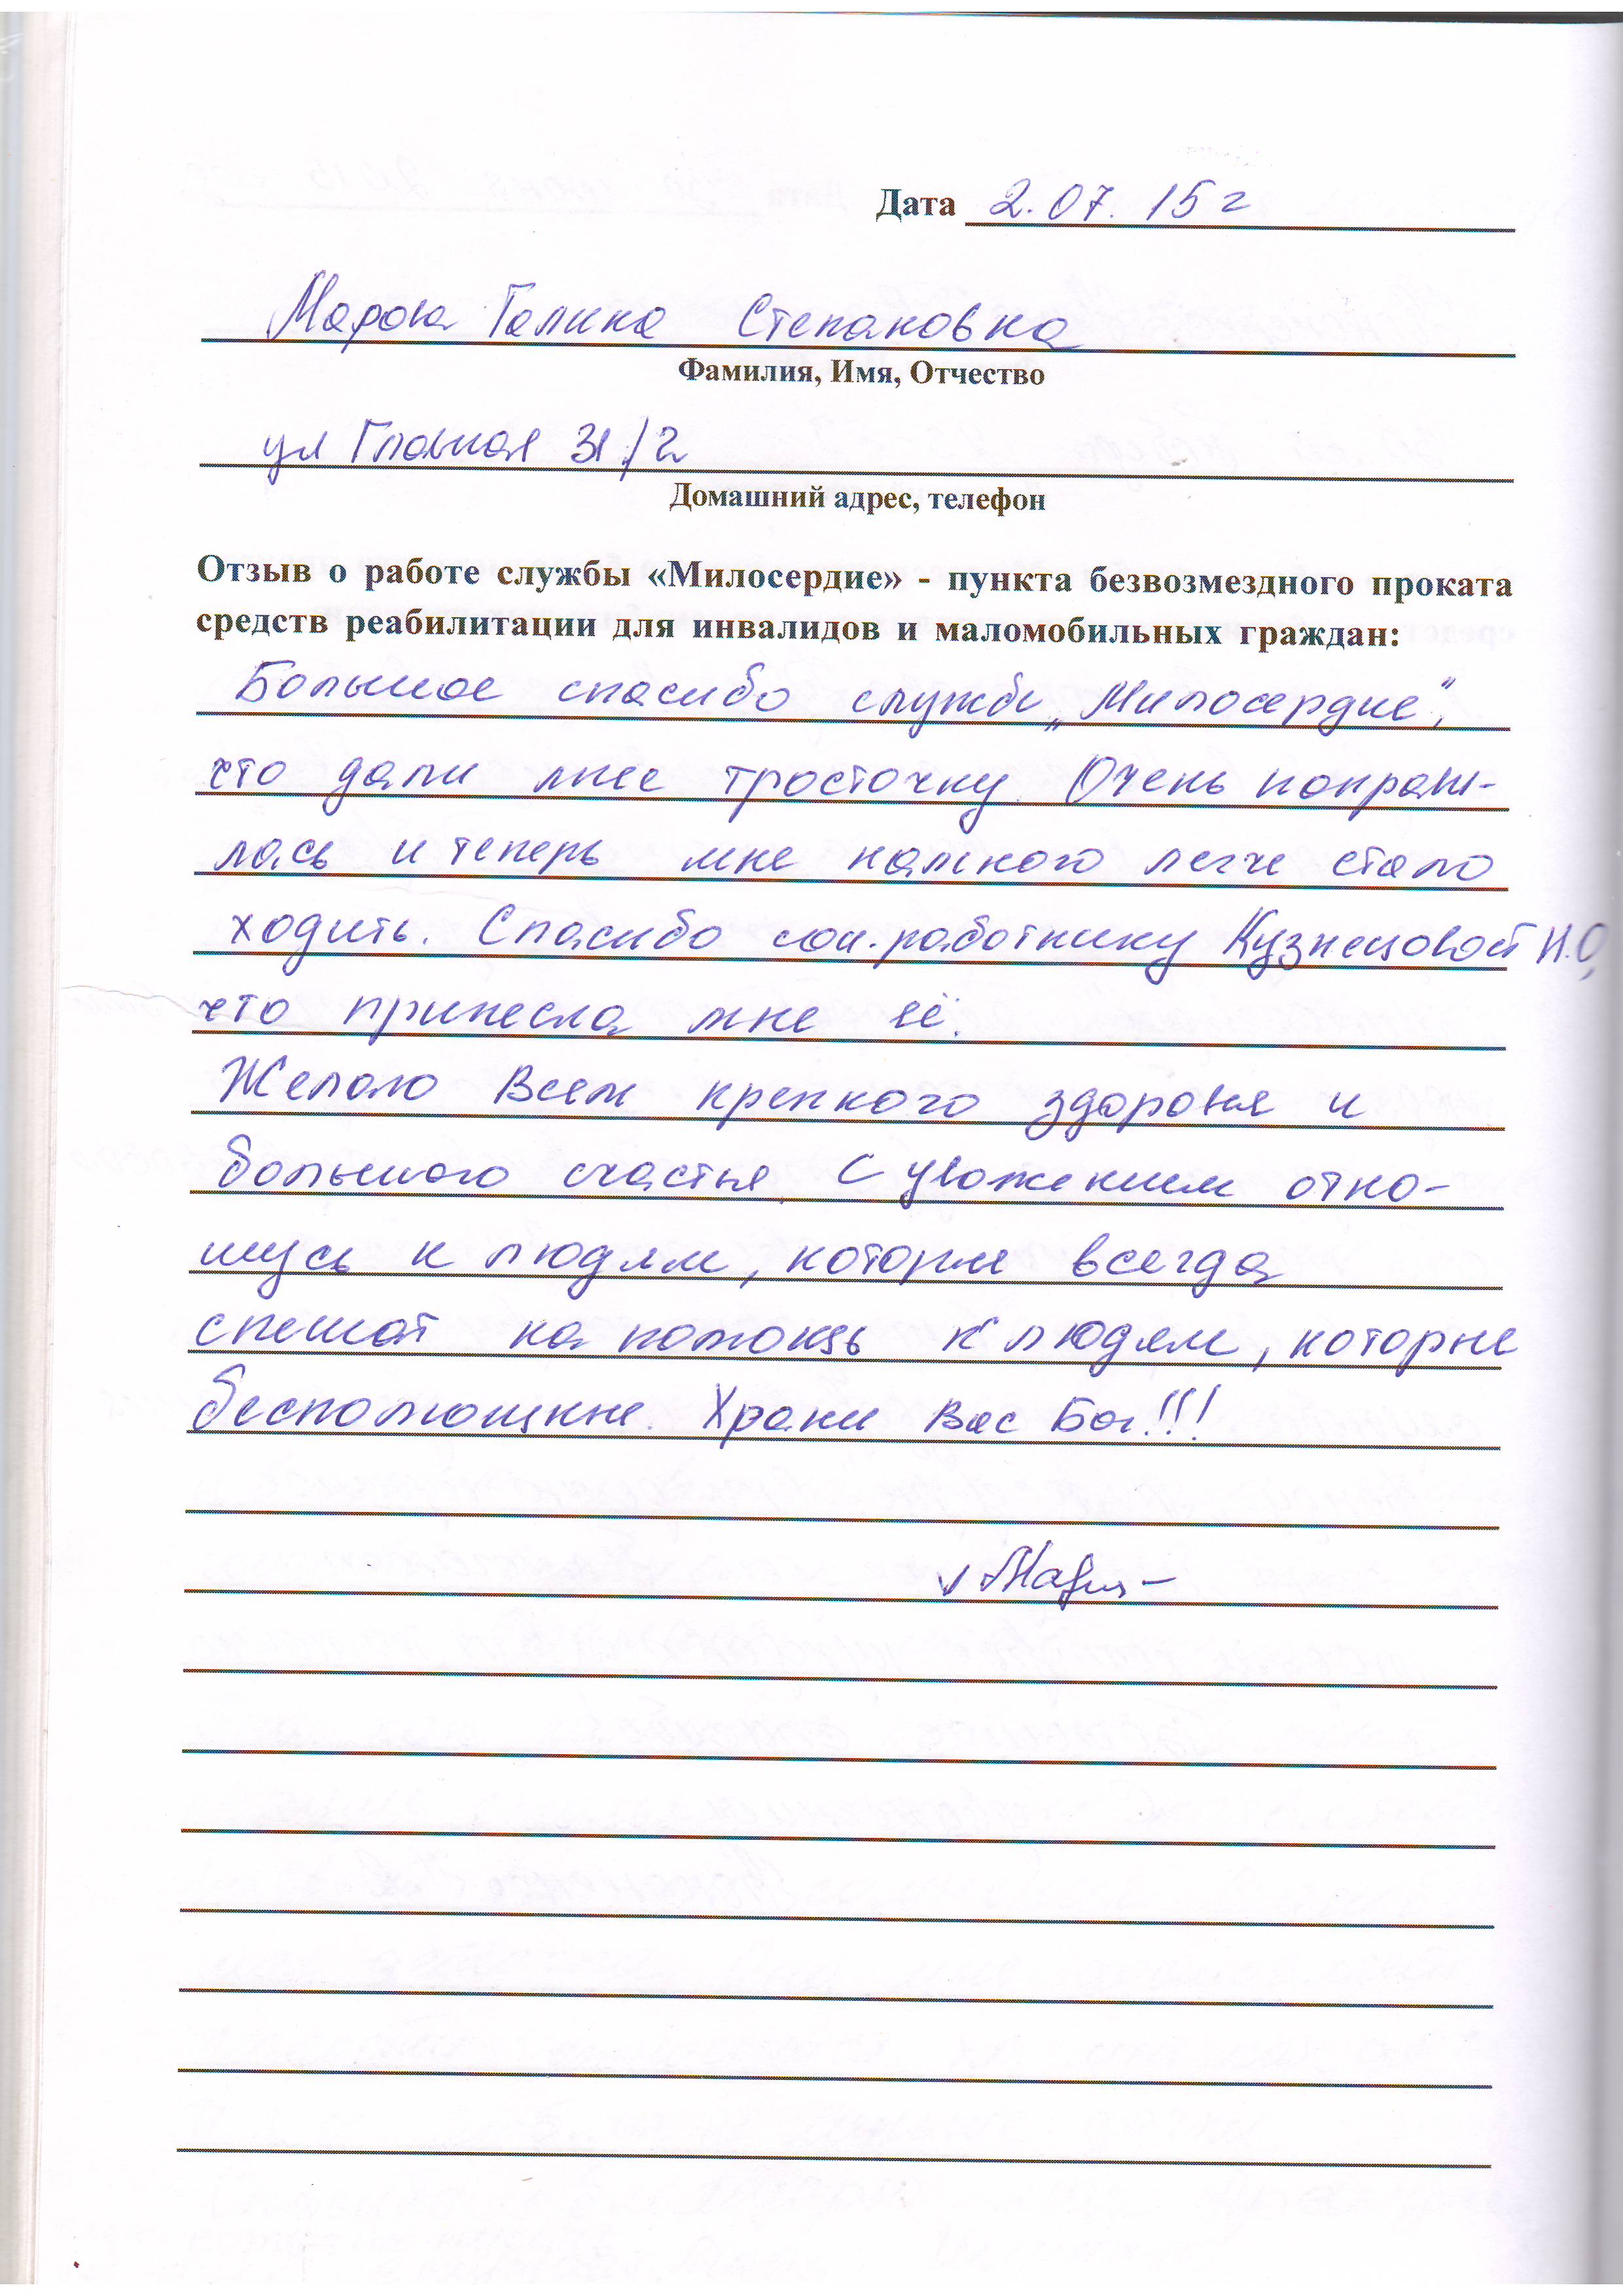 Дата 2.07. 15 г
Галина Степановна
Фамилия, Имя, Отчество
ул Главная 31/2
Домашний адрес, телефон
Отзыв о работе службы «Милосердие» - пункта безвозмездного проката
средств реабилитации для инвалидов и маломобильных граждан:
Большое спасибо службе „Милосердие",
что дали мне тросточку. Очень понрави-
лась и теперь мне намного легче стало
ходить. Спасибо соц. работнику Кузнецовой Н.О,
что принесла мне её.
Желаю Всем крепкого здоровья и
большого счастья. С уважением отно-
шусь к людям, которые всегда
спешат на помощь к людям, которые
беспомощные. Храни Вас Бог!!!